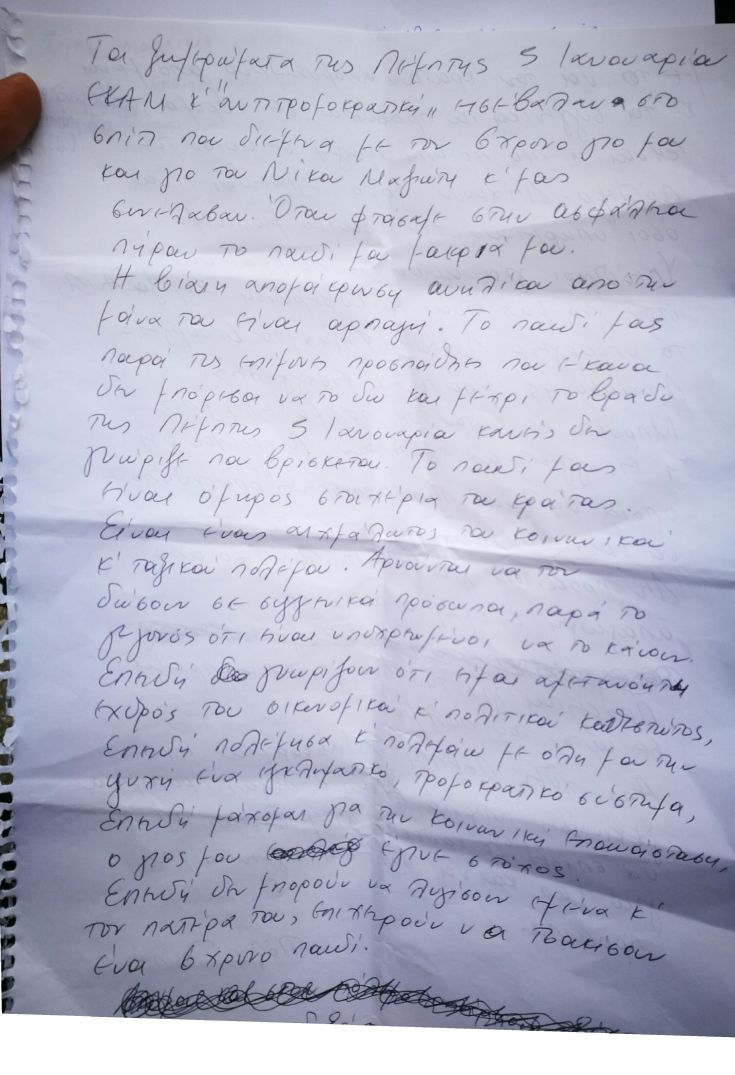 Τα ξημερώματα της Πέμπτης 5 Ιανουαρία
ΕΚΑΜ κ' "αντιτρομοκρατική" εισέβαλαν στο
σπίτι που διέμενα με τον 6χρονο γιο μου
και γιο του Νίκου Μαζιώτη κ' μας
συνέλαβαν. Όταν φτάσαμε στην ασφάλεια
πήραν το παιδί μου μακριά μου.
Η βίαιη απομάκρυνση ανηλίκου από την
μάνα του είναι αρπαγή. Το παιδί μας
παρά τις επίμονες προσπάθειες που έκανα
δεν μπόρεσα να το δω και μέχρι το βράδυ
της Πέμπτης 5 Ιανουαρία κανείς δεν
γνώριζε που βρίσκεται. Το παιδί μας
είναι όμηρος στα χέρια του κράτους.
Είναι ένας αιχμάλωτος του κοινωνικού
κ' ταξικού πολέμου. Αρνούνται να τον
δώσουν σε συγγενικά πρόσωπα, παρά το
γεγονός ότι είναι υποχρεωμένοι να το κάνουν.
Επειδή γνωρίζουν ότι είμαι αμετανόητη
εχθρός του οικονομικού κ' πολιτικού καθεστώτος,
Επειδή πολέμησα κ' πολεμάω με όλη μου την
ψυχή ένα εγκληματικό, τρομοκρατικό σύστημα,
Επειδή μάχομαι για την κοινωνική επανάσταση,
ο γιος μου έγινε στόχος.
Επειδή δεν μπορούν να λυγίσουν εμένα κ'
τον πατέρα του, επιχειρούν να τσακίσουν
ένα 6χρονο παιδί.